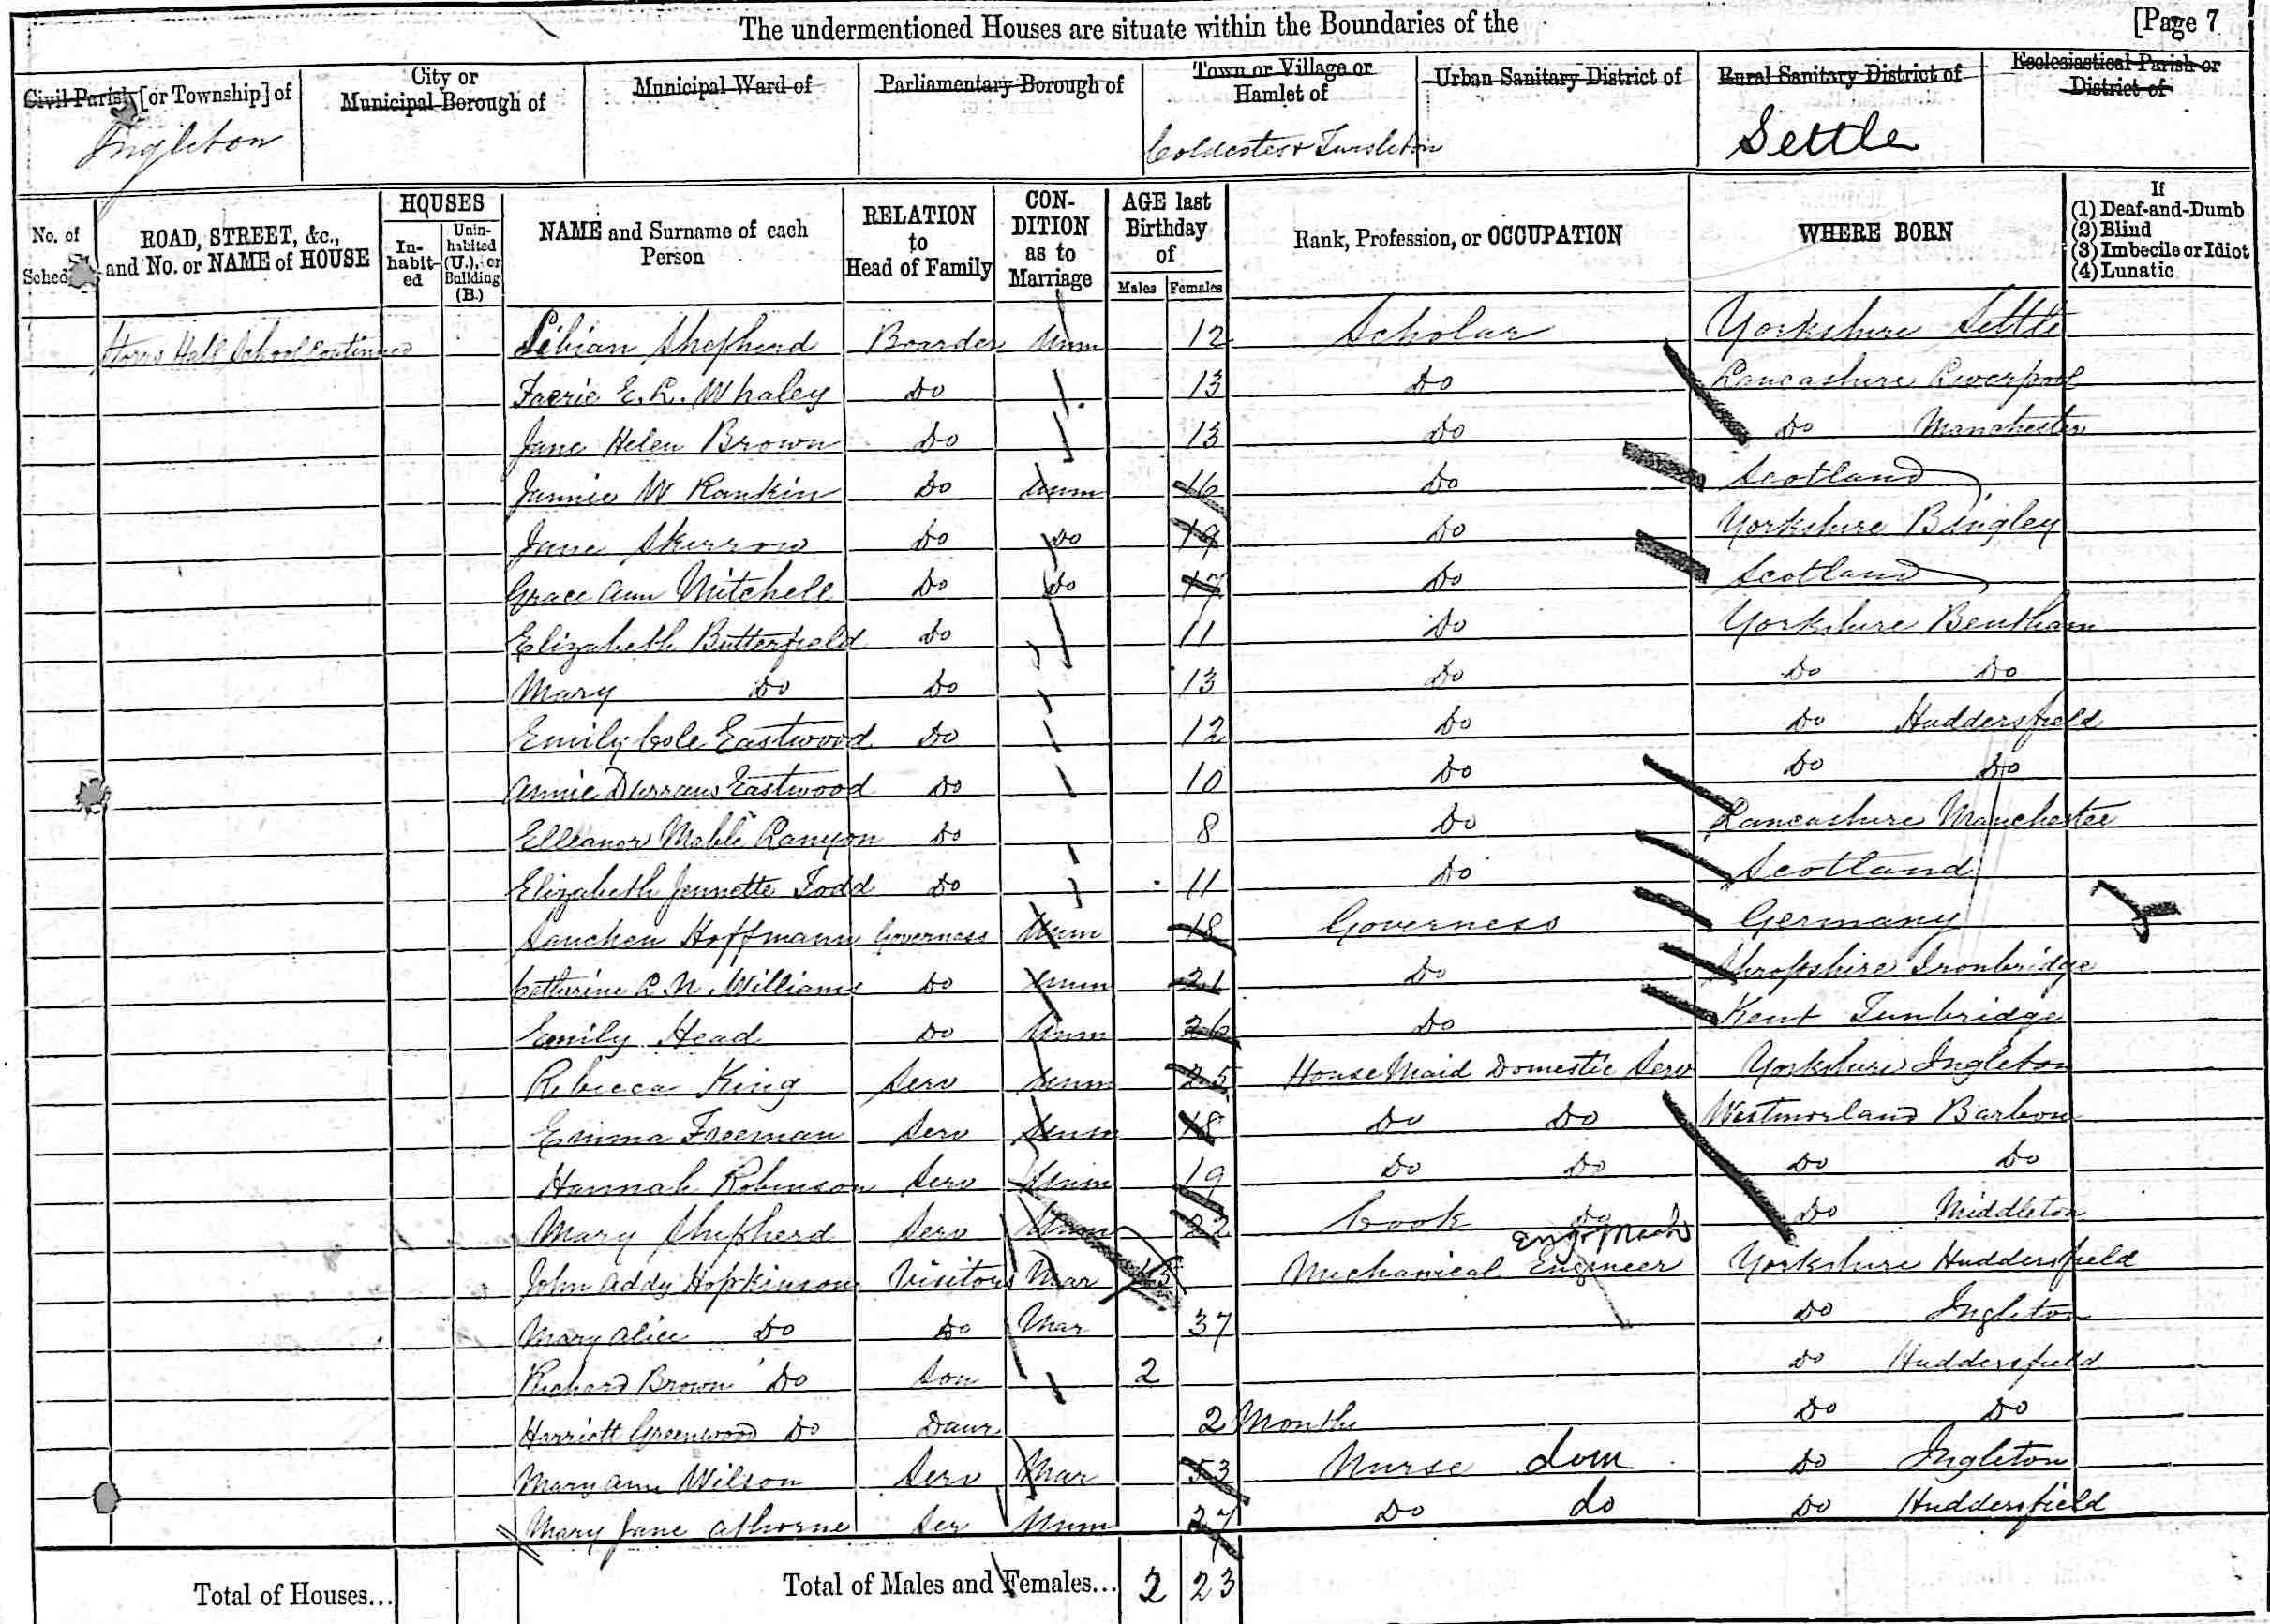 The undermentioned Houses are situate within the Boundaries of the [Page 7
Civil Parish [or Township] of City or Municipal Borough of Municipal Ward of Parliamentary Borough of Town or Village or Hamlet of Urban Sanitary District of Rural Sanitary District of Ecclesiastical Parish or District of
Ingleton Settle
No. of Schedule ROAD, STREET, &c., and No. or NAME of HOUSE HOUSES Inhabited Uninhabited (U.), or Building (B.) NAME and Surname of each Person RELATION to Head of Family CONDITION as to Marriage AGE last Birthday of Males Females Rank, Profession, or OCCUPATION WHERE BORN If (1) Deaf-and-Dumb (2) Blind (3) Imbecile or Idiot (4) Lunatic
Storrs Hall School Continued Libian Shepherd Boarder Unm 12 Scholar Yorkshire Settle
Faerie E. L. Whaley Do 13 Do Lancashire Liverpool
Jane Helen Brown Do 13 Do Do Manchester
Jannie W Rankin Do Unm 16 Do Scotland
Jane Skirrow Do Do Do Yorkshire Bingley
Grace Ann Mitchell Do Do 17 Do Scotland
Elizabeth Butterfield Do 11 Do Yorkshire Bentham
Mary Do Do 13 Do Do Do
Emily Cole Eastwood Do 12 Do Do Huddersfield
Annie Durrans Eastwood Do 10 Do Do Do
Elleanor Mable Ranyon Do 8 Do Lancashire Manchester
Elizabeth Jennette Todd Do 11 Do Scotland
Sanchen Hoffmann Governess Unm 18 Governess Germany
Catherine L. N. Williams Do Unm 21 Do Shropshire Ironbridge
Emily Head Do Unm 26 Do Kent Tunbridge
Rebecca King Serv Unm 25 House Maid Domestic Serv Yorkshire Ingleton
Emma Freeman Serv Unm 18 Do Do Westmorland Barbon
Hannah Robinson Serv Unm 19 Do Do Do Do
Mary Shepherd Serv Unm 22 Cook Do Do Middleton
John Addy Hopkinson Visitors Mar 45 Mechanical Engineer Eng. Mech Yorkshire Huddersfield
Mary Alice Do Do Mar 37 Do Ingleton
Richard Brown Do Son 2 Do Huddersfield
Harriott Greenwood Do Daur 2 Months Do Do
Mary Ann Wilson Serv Mar 53 Nurse dom Do Ingleton
Mary Jane Ser Unm 27 Do do Do Huddersfield
Total of Houses... Total of Males and Females... 2 23